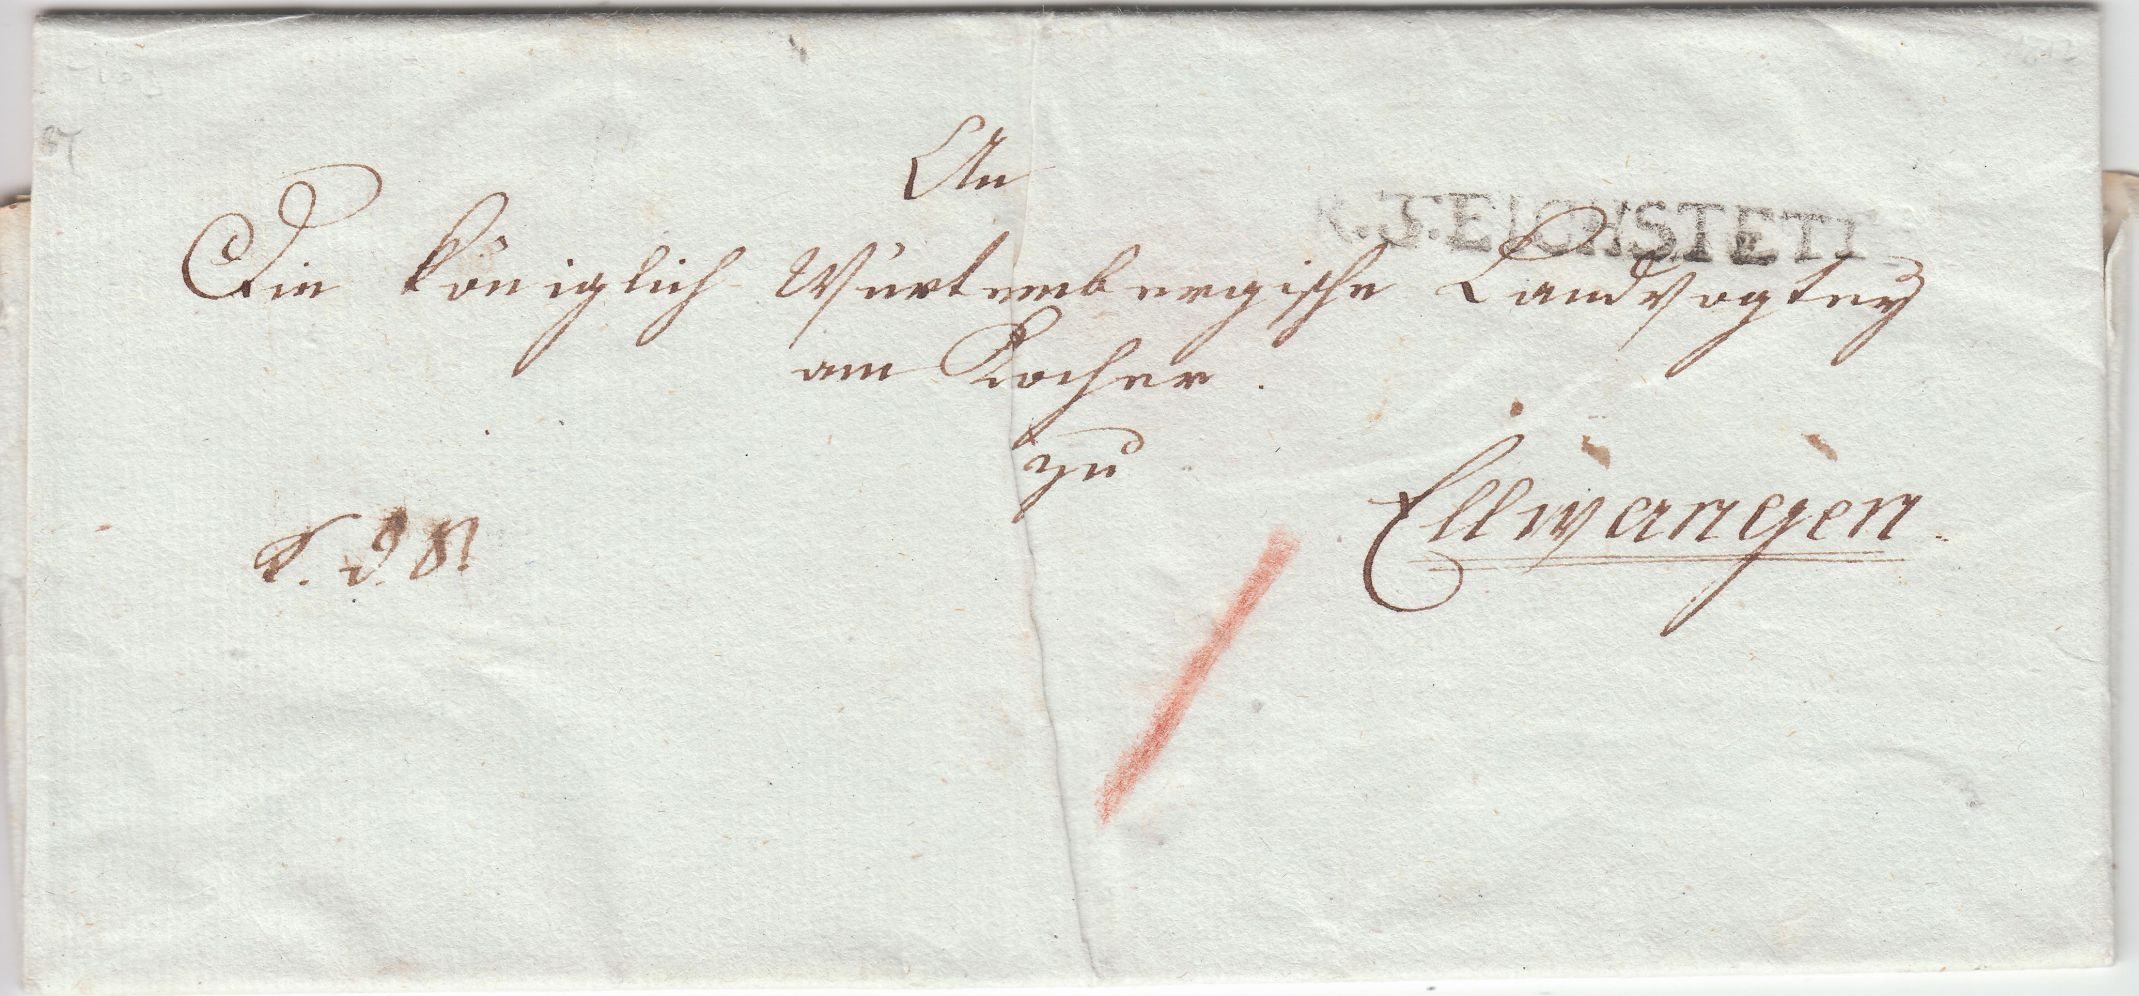 An
R.3.EICHSTETT.
Die königlich Würtembergische Landvogtey
am Kocher.
zu
Ellwangen.